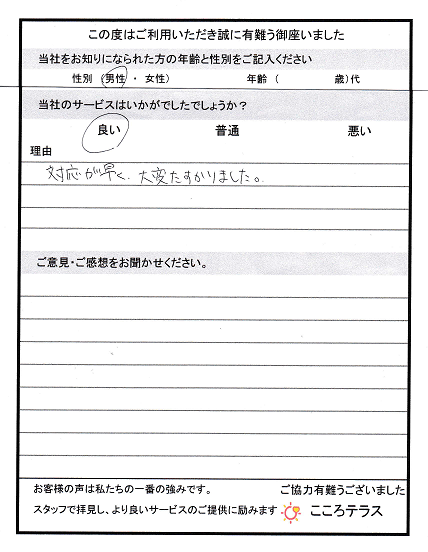 この度はご利用いただき誠に有難う御座いました
当社をお知りになられた方の年齢と性別をご記入ください
性別 (男性 ・ 女性) 年齢 ( 歳)代
当社のサービスはいかがでしたでしょうか?
良い 普通 悪い
理由
対応が早く、大変たすかりました。
ご意見・ご感想をお聞かせください。
お客様の声は私たちの一番の強みです。 ご協力有難うございました
スタッフで拝見し、より良いサービスのご提供に励みます こころテラス